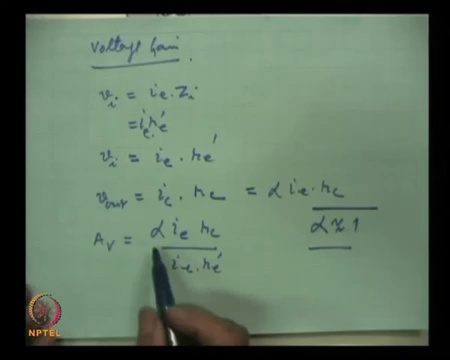 Voltage Gain
v_i = i_e . z_i
= i_e r_e'
v_i = i_e . r_e'
v_out = i_c . r_c = α i_e . r_c
α ≈ 1
A_v = α i_e r_c
i_e . r_e'
NPTEL